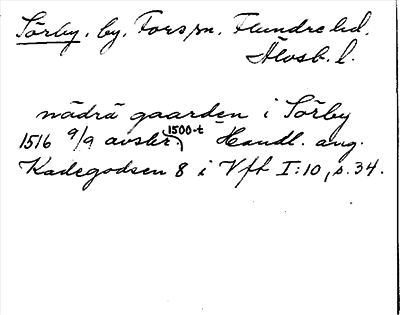 Sörby, by, Fors sn. Flundre hd.
Älvsb. l.
nädrä gaarden i Sörby
1516 9/9 avskr. 1500-t) Handl. ang.
Kadegodsen 8 i Vft I:10, s. 34.